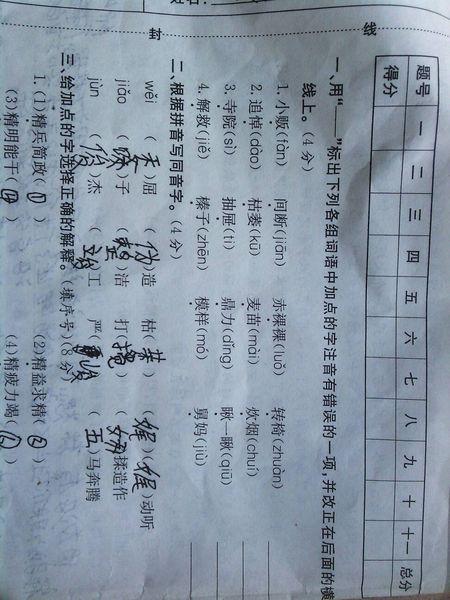 封 线
题号 一 二 三 四 五 六 七 八 九 十 十一 总分
得分
一、用“____”标出下列各组词语中加点的字注音有错误的一项,并改正在后面的横
线上。(4分)
1. 小贩(fàn) 间断(jiān) 赤裸裸(luǒ) 转椅(zhuàn)
2. 追悼(dào) 枯萎(kū) 麦苗(mài) 炊烟(chuí)
3. 寺院(sì) 抽屉(tì) 鼎力(dǐng) 瞅一瞅(qiū)
4. 解救(jiě) 榛子(zhēn) 模样(mó) 舅妈(jiù)
二、根据拼音写同音字。(4分)
wěi ( )屈 (伪)造 枯( ) (娓)(娓)动听
jiǎo ( )子 ( )洁 打(搅) ( )揉造作
jùn (俊)杰 ( )工 严(峻) ( )马奔腾
三、给加点的字选择正确的解释。(填序号)(8分)
1. (1)精兵简政(①) (2)精益求精(②)
(3)精明能干(④) (4)精疲力竭( )